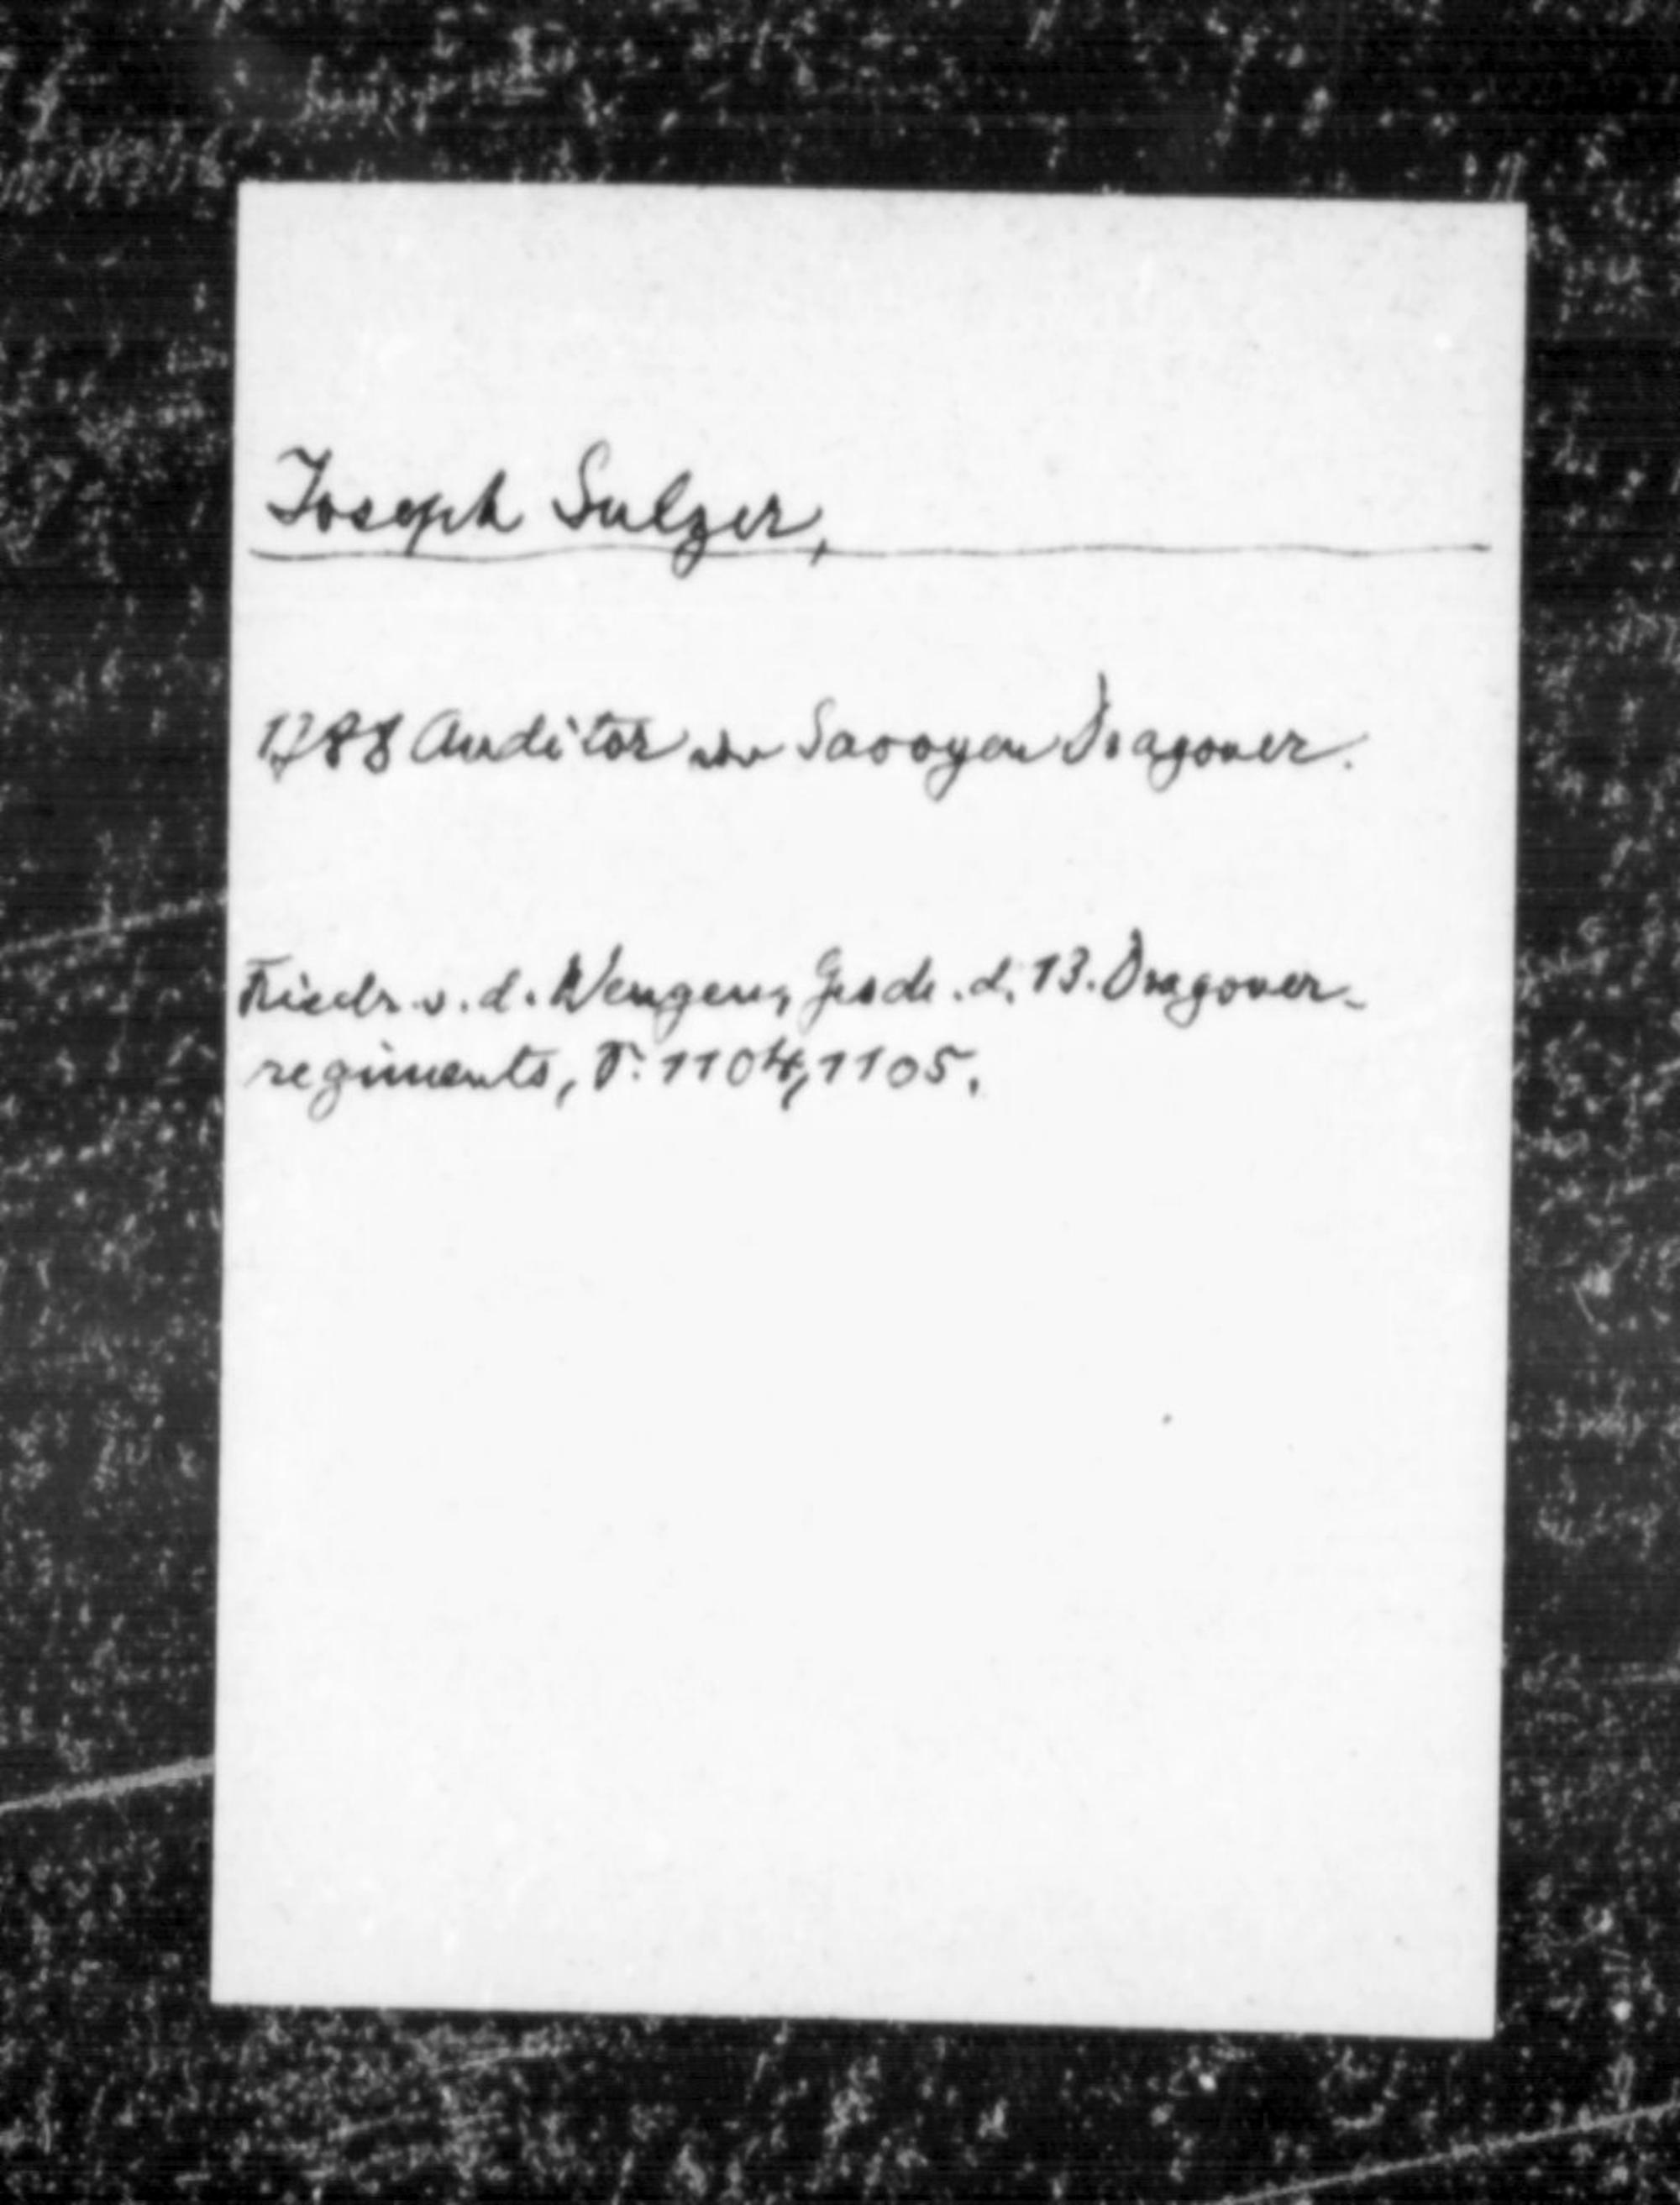 Joseph Sulzer,
1788 Auditor von Savoyen Dragoner.
Friedr. v. d. Wengen, Gesch. d. 13. Dragoner-
regiments, S. 1104, 1105.